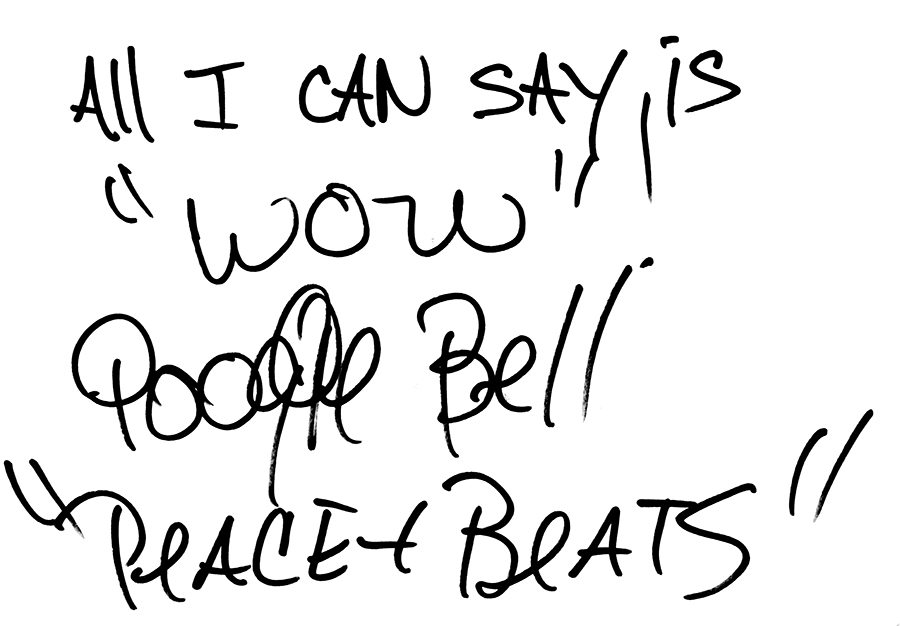 All I CAN SAY, is
"WOW"
Poodle Bell
"PeACE + BeATS"